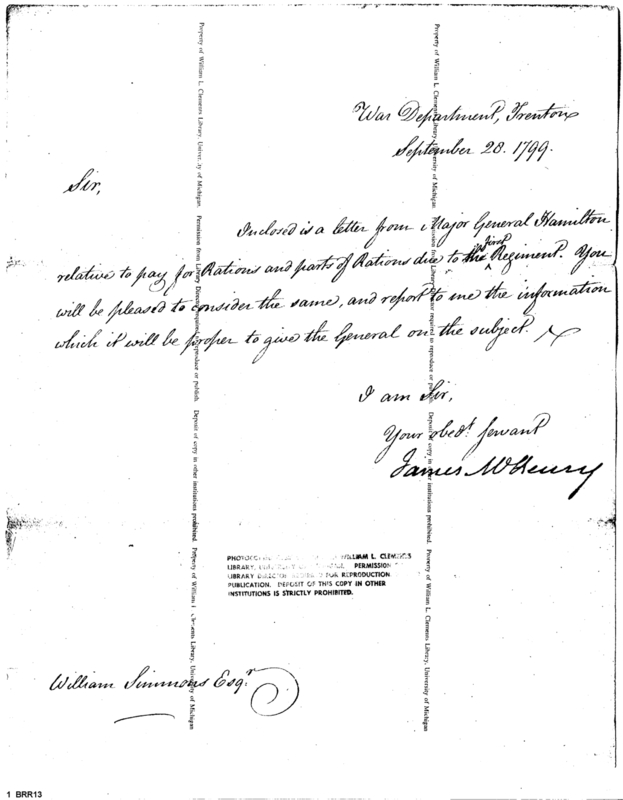 War Department, Trenton
September 28. 1799.
Sir,
Inclosed is a letter from Major General Hamilton
first
relative to pay for Rations and parts of Rations due to the Regiment. You
will be pleased to consider the same, and report to me the information
which it will be proper to give the General on the subject.
I am Sir,
Your obedt. servant
James McHenry
PHOTOCO WILLIAM L. CLEMENTS
LIBRARY, PERMISSION
LIBRARY DIRECTOR FOR REPRODUCTION
PUBLICATION. DEPOSIT OF THIS COPY IN OTHER
INSTITUTIONS IS STRICTLY PROHIBITED.
William Simmons Esqr.
Property of William L. Clements Library, University of Michigan. Permission from Library Director required to reproduce or publish. Deposit of copy in other institutions prohibited. Property of William L. Clements Library, University of Michigan
Property of William L. Clements Library, University of Michigan. Permission from Library Director required to reproduce or publish. Deposit of copy in other institutions prohibited. Property of William L. Clements Library, University of Michigan
1 BRR13